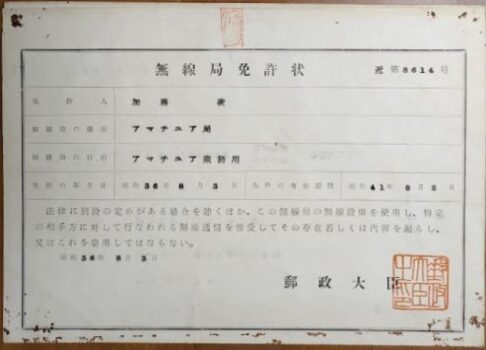 無線局免許状
近第8614号
免許人 加藤
無線局の種別 アマチュア局
無線局の目的 アマチュア業務用
免許の年月日 昭和36年8月3日 免許の有効期間 昭和41年8月2日
法律に別段の定めがある場合を除くほか、この無線局の無線設備を使用し、特定
の相手方に対して行なわれる無線通信を傍受してその存在若しくは内容を漏らし、
又はこれを窃用してはならない。
昭和36年8月3日
郵政大臣